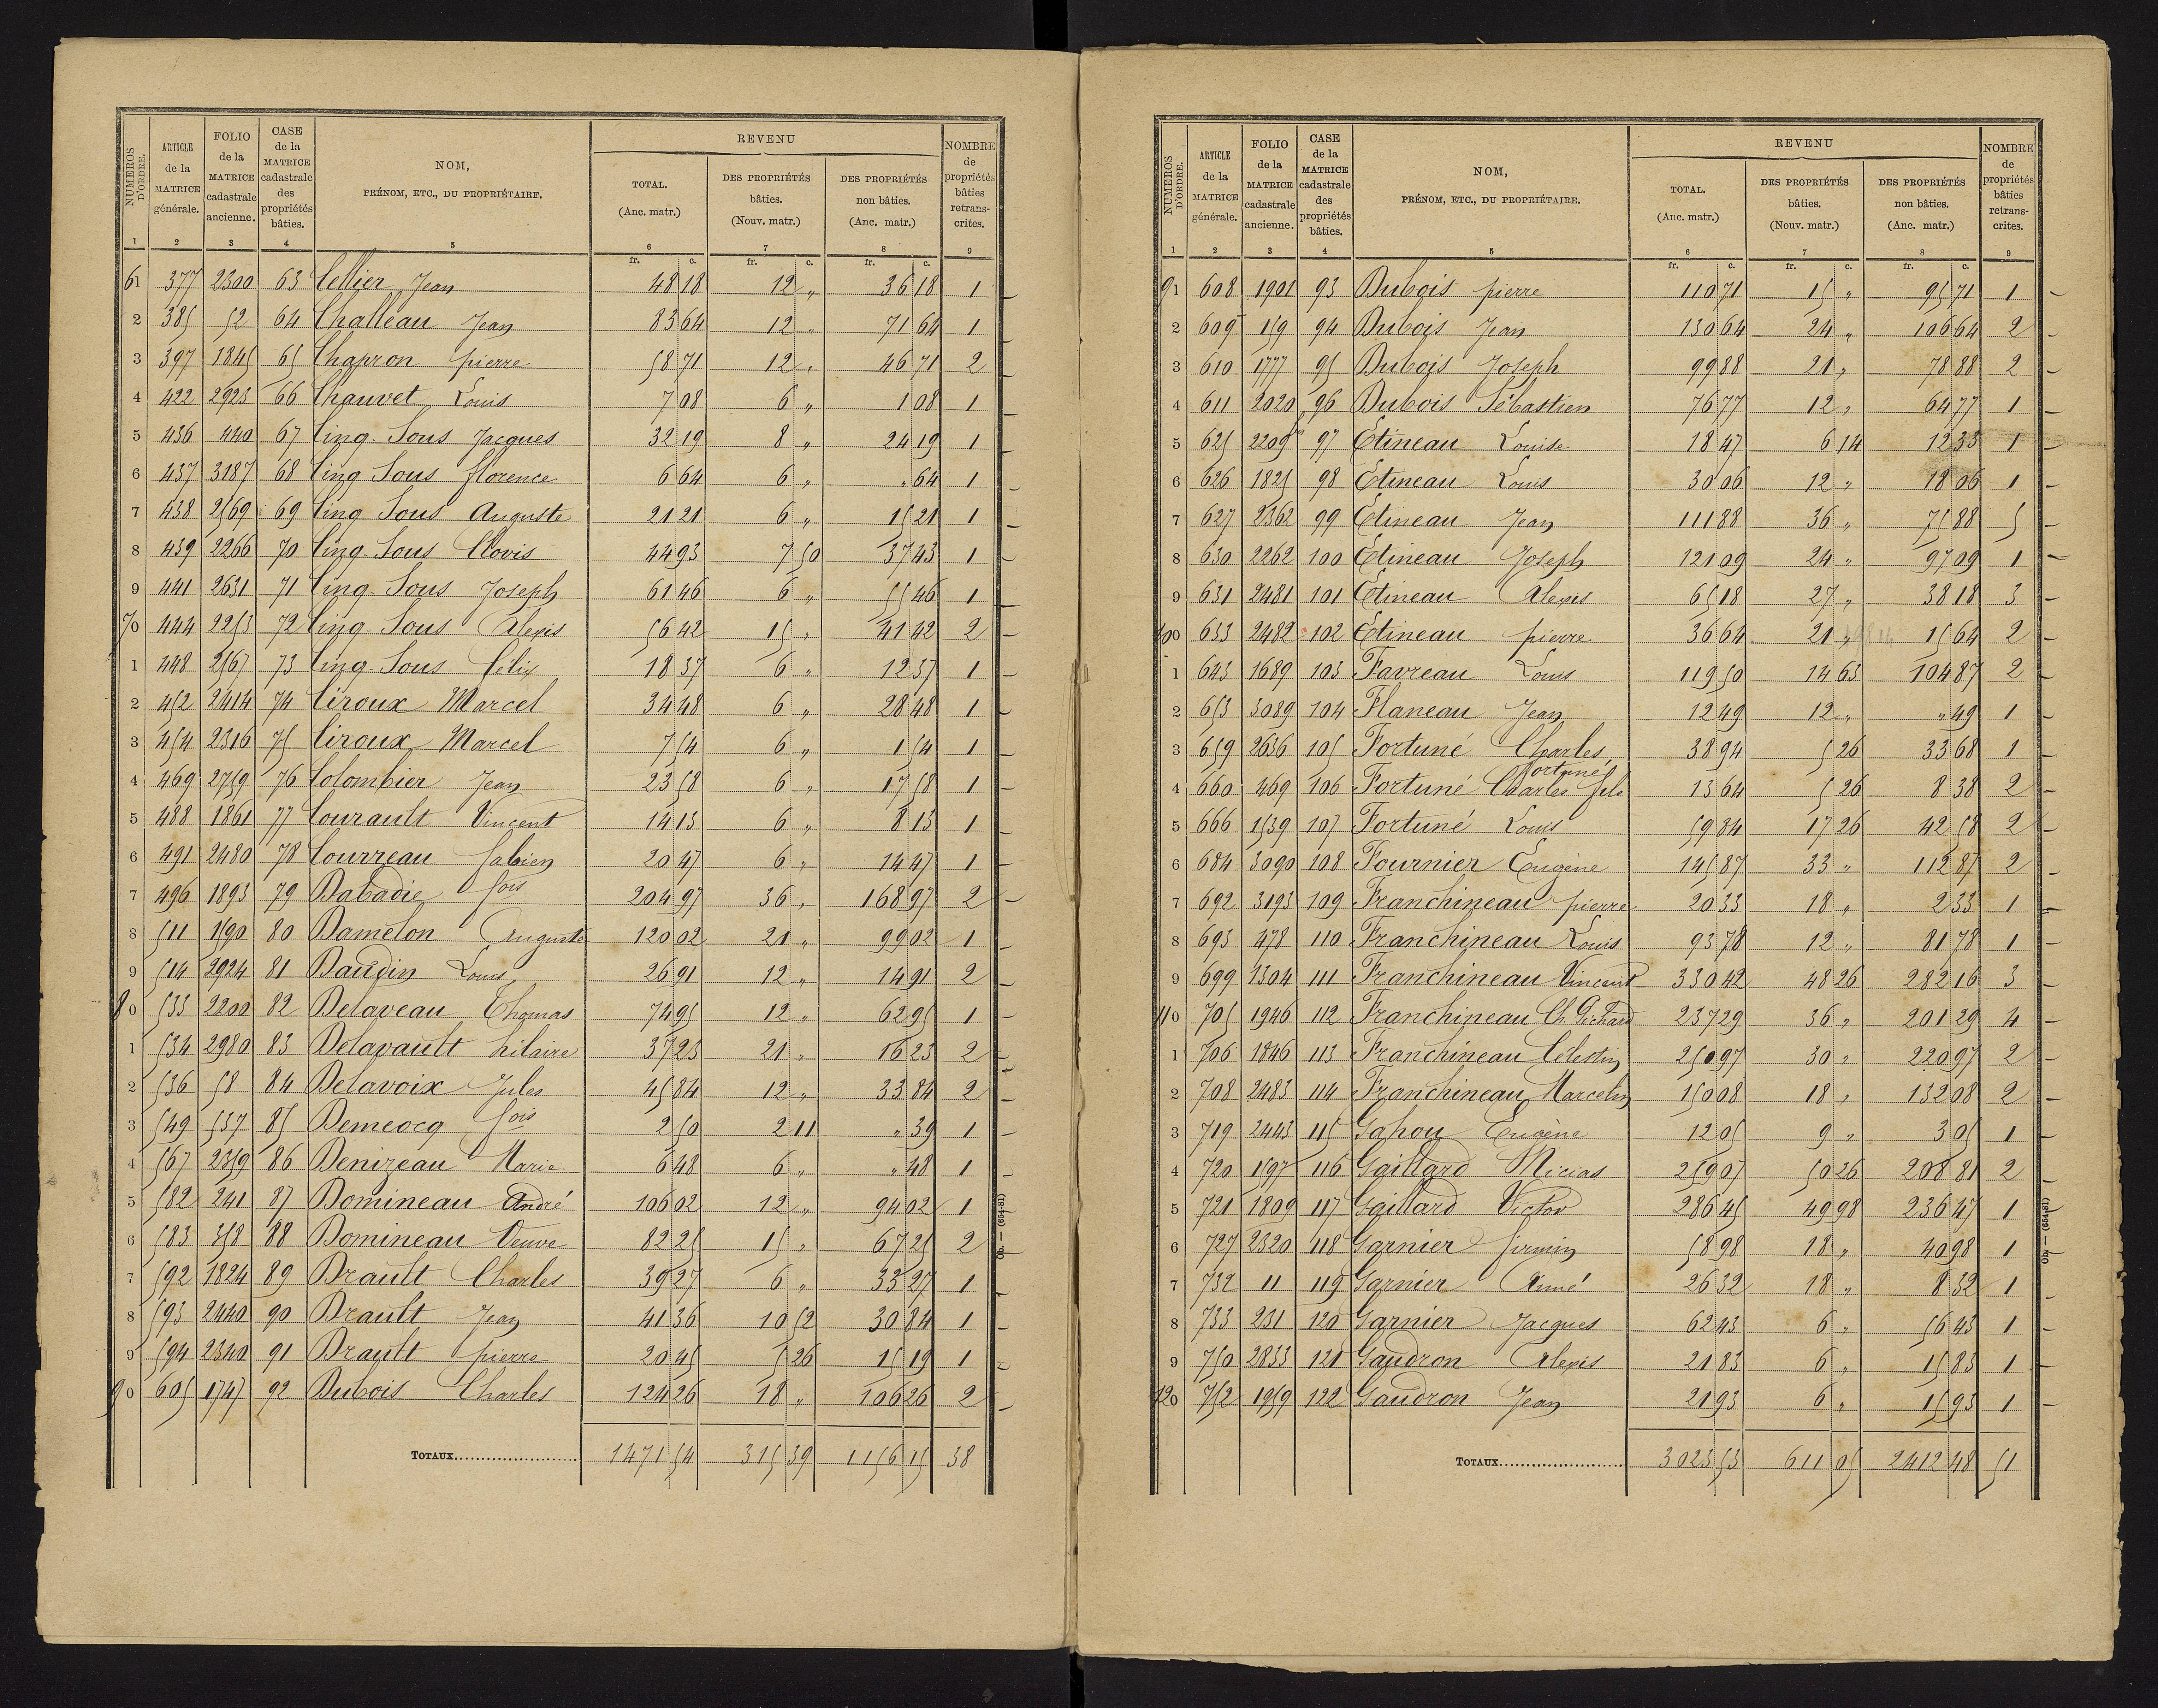 NUMÉROS D'ORDRE. | ARTICLE de la MATRICE générale. | FOLIO de la MATRICE cadastrale ancienne. | CASE de la MATRICE cadastrale des propriétés bâties. | NOM, PRÉNOM, ETC., DU PROPRIÉTAIRE. | REVENU | NOMBRE de propriétés bâties retrans-crites.
TOTAL. (Anc. matr.) | DES PROPRIÉTÉS bâties. (Nouv. matr.) | DES PROPRIÉTÉS non bâties. (Anc. matr.)
1 2 3 4 5 6 7 8 9
fr. c. fr. c. fr. c.
61 377 2300 63 Cellier Jean 48 18 12 " 36 18 1
2 385 52 64 Challeau Jean 83 64 12 " 71 64 1
3 397 1845 65 Chapron pierre 58 71 12 " 46 71 2
4 422 2923 66 Chauvet Louis 7 08 6 " 1 08 1
5 436 440 67 Cinq-Sous Jacques 32 19 8 " 24 19 1
6 437 3187 68 Cinq Sous florence 6 64 6 " " 64 1
7 438 2569 69 Cinq Sous Auguste 21 21 6 " 15 21 1
8 439 2266 70 Cinq-Sous Clovis 44 93 7 50 37 43 1
9 441 2631 71 Cinq-Sous Joseph 61 46 6 " 55 46 1
70 444 2253 72 Cinq-Sous Alexis 56 42 15 " 41 42 2
1 448 2567 73 Cinq-Sous Célix 18 37 6 " 12 37 1
2 452 2414 74 Ciroux Marcel 34 48 6 " 28 48 1
3 454 2316 75 Ciroux Marcel 7 54 6 " 1 54 1
4 469 2759 76 Colombier Jean 23 58 6 " 17 58 1
5 488 1861 77 Courault Vincent 14 13 6 " 8 13 1
6 491 2480 78 Courreau fabien 20 47 6 " 14 47 1
7 496 1893 79 Dabadie fois 204 97 36 " 168 97 2
8 511 1590 80 Damelon Auguste 120 02 21 " 99 02 1
9 514 2924 81 Daudin Louis 26 91 12 " 14 91 2
80 533 2200 82 Delaveau Thomas 74 95 12 " 62 95 1
1 534 2980 83 Delavault hilaire 37 23 21 " 16 23 2
2 536 58 84 Delavoix Jules 45 84 12 " 33 84 2
3 549 537 85 Demeocq fois 2 50 2 11 " 39 1
4 567 2359 86 Denizeau Marie 6 48 6 " " 48 1
5 582 241 87 Domineau André 106 02 12 " 94 02 1
6 583 358 88 Domineau Veuve 82 25 15 " 67 25 2
7 592 1824 89 Drault Charles 39 27 6 " 33 27 1
8 593 2440 90 Drault Jean 41 36 10 52 30 84 1
9 594 2340 91 Drault pierre 20 45 5 26 15 19 1
90 605 1747 92 Dubois Charles 124 26 18 " 106 26 2
TOTAUX 1471 54 315 39 1156 15 38
NUMÉROS D'ORDRE. | ARTICLE de la MATRICE générale. | FOLIO de la MATRICE cadastrale ancienne. | CASE de la MATRICE cadastrale des propriétés bâties. | NOM, PRÉNOM, ETC., DU PROPRIÉTAIRE. | REVENU | NOMBRE de propriétés bâties retrans-crites.
TOTAL. (Anc. matr.) | DES PROPRIÉTÉS bâties. (Nouv. matr.) | DES PROPRIÉTÉS non bâties. (Anc. matr.)
1 2 3 4 5 6 7 8 9
fr. c. fr. c. fr. c.
91 608 1901 93 Dubois pierre 110 71 15 " 95 71 1
2 609 159 94 Dubois Jean 130 64 24 " 106 64 2
3 610 1777 95 Dubois Joseph 99 88 21 " 78 88 2
4 611 2020 96 Dubois Sébastien 76 77 12 " 64 77 1
5 625 2209 97 Etineau Louise 18 47 6 14 12 33 1
6 626 1825 98 Etineau Louis 30 06 12 " 18 06 1
7 627 2362 99 Etineau Jean 111 88 36 " 75 88 5
8 630 2262 100 Etineau Joseph 121 09 24 " 97 09 1
9 631 2481 101 Etineau Alexis 65 18 27 " 38 18 3
100 633 2482 102 Etineau pierre 36 64 21 " 15 64 2
1 643 1689 103 Favreau Louis 119 50 14 63 104 87 2
2 653 3089 104 Flaneau Jean 12 49 12 " " 49 1
3 659 2636 105 Fortuné Charles 38 94 5 26 33 68 1
4 660 469 106 Fortuné Charles fortuné fils 13 64 5 26 8 38 2
5 666 1539 107 Fortuné Louis 59 84 17 26 42 58 2
6 684 3090 108 Fournier Eugène 145 87 33 " 112 87 2
7 692 3193 109 Franchineau pierre 20 33 18 " 2 33 1
8 693 478 110 Franchineau Louis 93 78 12 " 81 78 1
9 699 1304 111 Franchineau Vincent 330 42 48 26 282 16 3
110 705 1946 112 Franchineau Ch. Pichard 237 29 36 " 201 29 4
1 706 1846 113 Franchineau Célestin 250 97 30 " 220 97 2
2 708 2483 114 Franchineau Marcelin 150 08 18 " 132 08 2
3 719 2443 115 Gahou Eugène 12 05 9 " 3 05 1
4 720 1597 116 Gaillard Nicias 259 07 50 26 208 81 2
5 721 1809 117 Gaillard Victor 286 45 49 98 236 47 1
6 727 2320 118 Garnier firmin 58 98 18 " 40 98 1
7 732 11 119 Garnier Aimé 26 32 18 " 8 32 1
8 733 231 120 Garnier Jacques 62 43 6 " 56 43 1
9 750 2833 121 Gaudron Alexis 21 83 6 " 15 83 1
120 752 1959 122 Gaudron Jean 21 93 6 " 15 93 1
TOTAUX 3023 53 611 05 2412 48 51